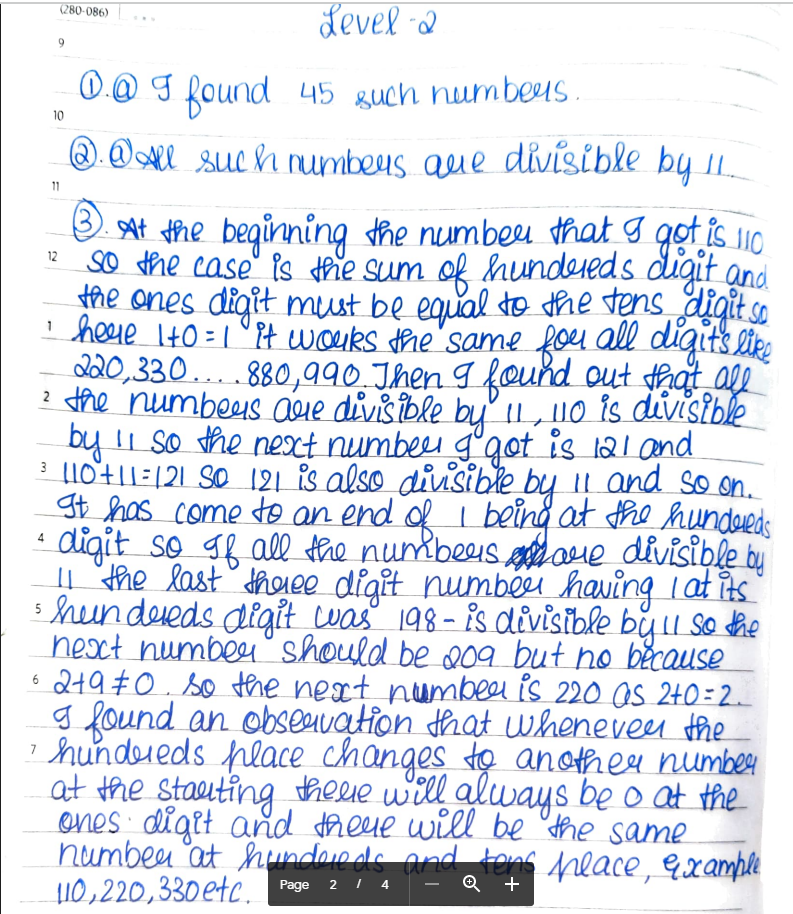 (280-086)
Level-2
9
①.ⓐ I found 45 such numbers.
10
②.ⓐ All such numbers are divisible by 11.
11
③. At the beginning the number that I got is 110
12 so the case is the sum of hundreds digit and
the ones digit must be equal to the tens digit so
1 here 1+0=1 it works the same for all digits like
220,330....880,990. Then I found out that all
2 the numbers are divisible by 11, 110 is divisible
by 11 so the next number I got is 121 and
3 110+11=121 so 121 is also divisible by 11 and so on.
It has come to an end of 1 being at the hundreds
4 digit so If all the numbers are divisible by
11 the last three digit number having 1 at its
5 hundreds digit was 198- is divisible by 11 so the
next number should be 209 but no because
6 2+9≠0. so the next number is 220 as 2+0=2.
I found an observation that whenever the
7 hundreds place changes to another number
at the starting there will always be 0 at the
ones digit and there will be the same
number at hundreds and tens place, Example
110,220,330etc.
Page 2 / 4